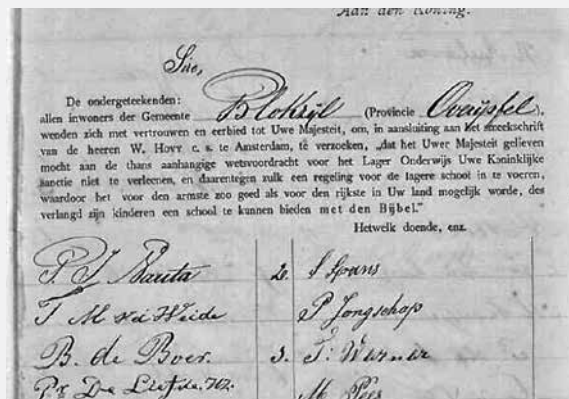 Aan den Koning.
Sire,
De ondergeteekenden:
allen inwoners der Gemeente Blokzijl (Provincie Overijssel),
wenden zich met vertrouwen en eerbied tot Uwe Majesteit, om, in aansluiting aan het smeekschrift
van de heeren W. Hovy c. s. te Amsterdam, te verzoeken, „dat het Uwer Majesteit gelieven
mocht aan de thans aanhangige wetsvoordracht voor het Lager Onderwijs Uwe Koninklijke
sanctie niet te verleenen, en daarentegen zulk een regeling voor de lagere school in te voeren,
waardoor het voor den armste zoo goed als voor den rijkste in Uw land mogelijk worde, des
verlangd zijn kinderen een school te kunnen bieden met den Bijbel."
Hetwelk doende, enz.
2. S Spans
P Jongschap
B. de Boer. 3. T. Werner
De Liefde